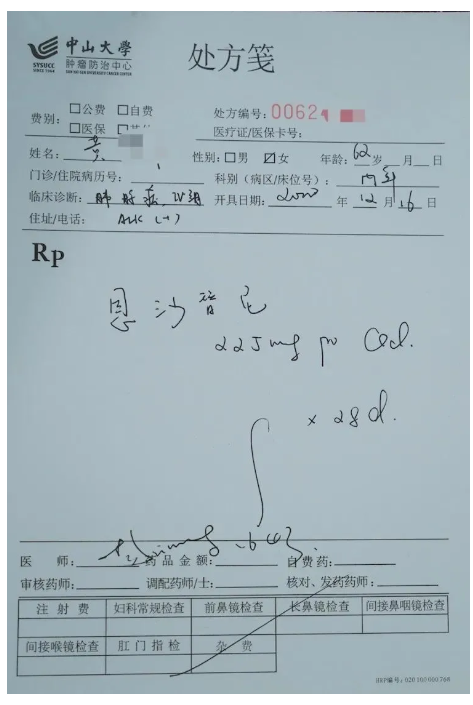 中山大学
肿瘤防治中心
SYSUCC
SINCE 1964
SUN YAT-SEN UNIVERSITY CANCER CENTER
处方笺
费别: □公费 □自费
□医保
处方编号: 0062
医疗证/医保卡号:
姓名: 黄 性别: □男 ☑女 年龄: 62 岁 月 日
门诊/住院病历号: 科别(病区/床位号): 内科
临床诊断: 肺腺癌 IV期 开具日期: 2020 年 12 月 16 日
住址/电话: ALK (+)
Rp
恩沙替尼
225mg po Qd.
× 28d.
医 师: 药品金额: 自费药:
审核药师: 调配药师/士: 核对、发药药师:
注射费 妇科常规检查 前鼻镜检查 长鼻镜检查 间接鼻咽镜检查
间接喉镜检查 肛门指检 杂费